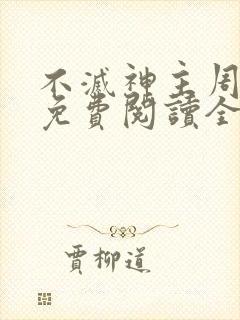 不滅神主周
免費閱讀全
賈柳道